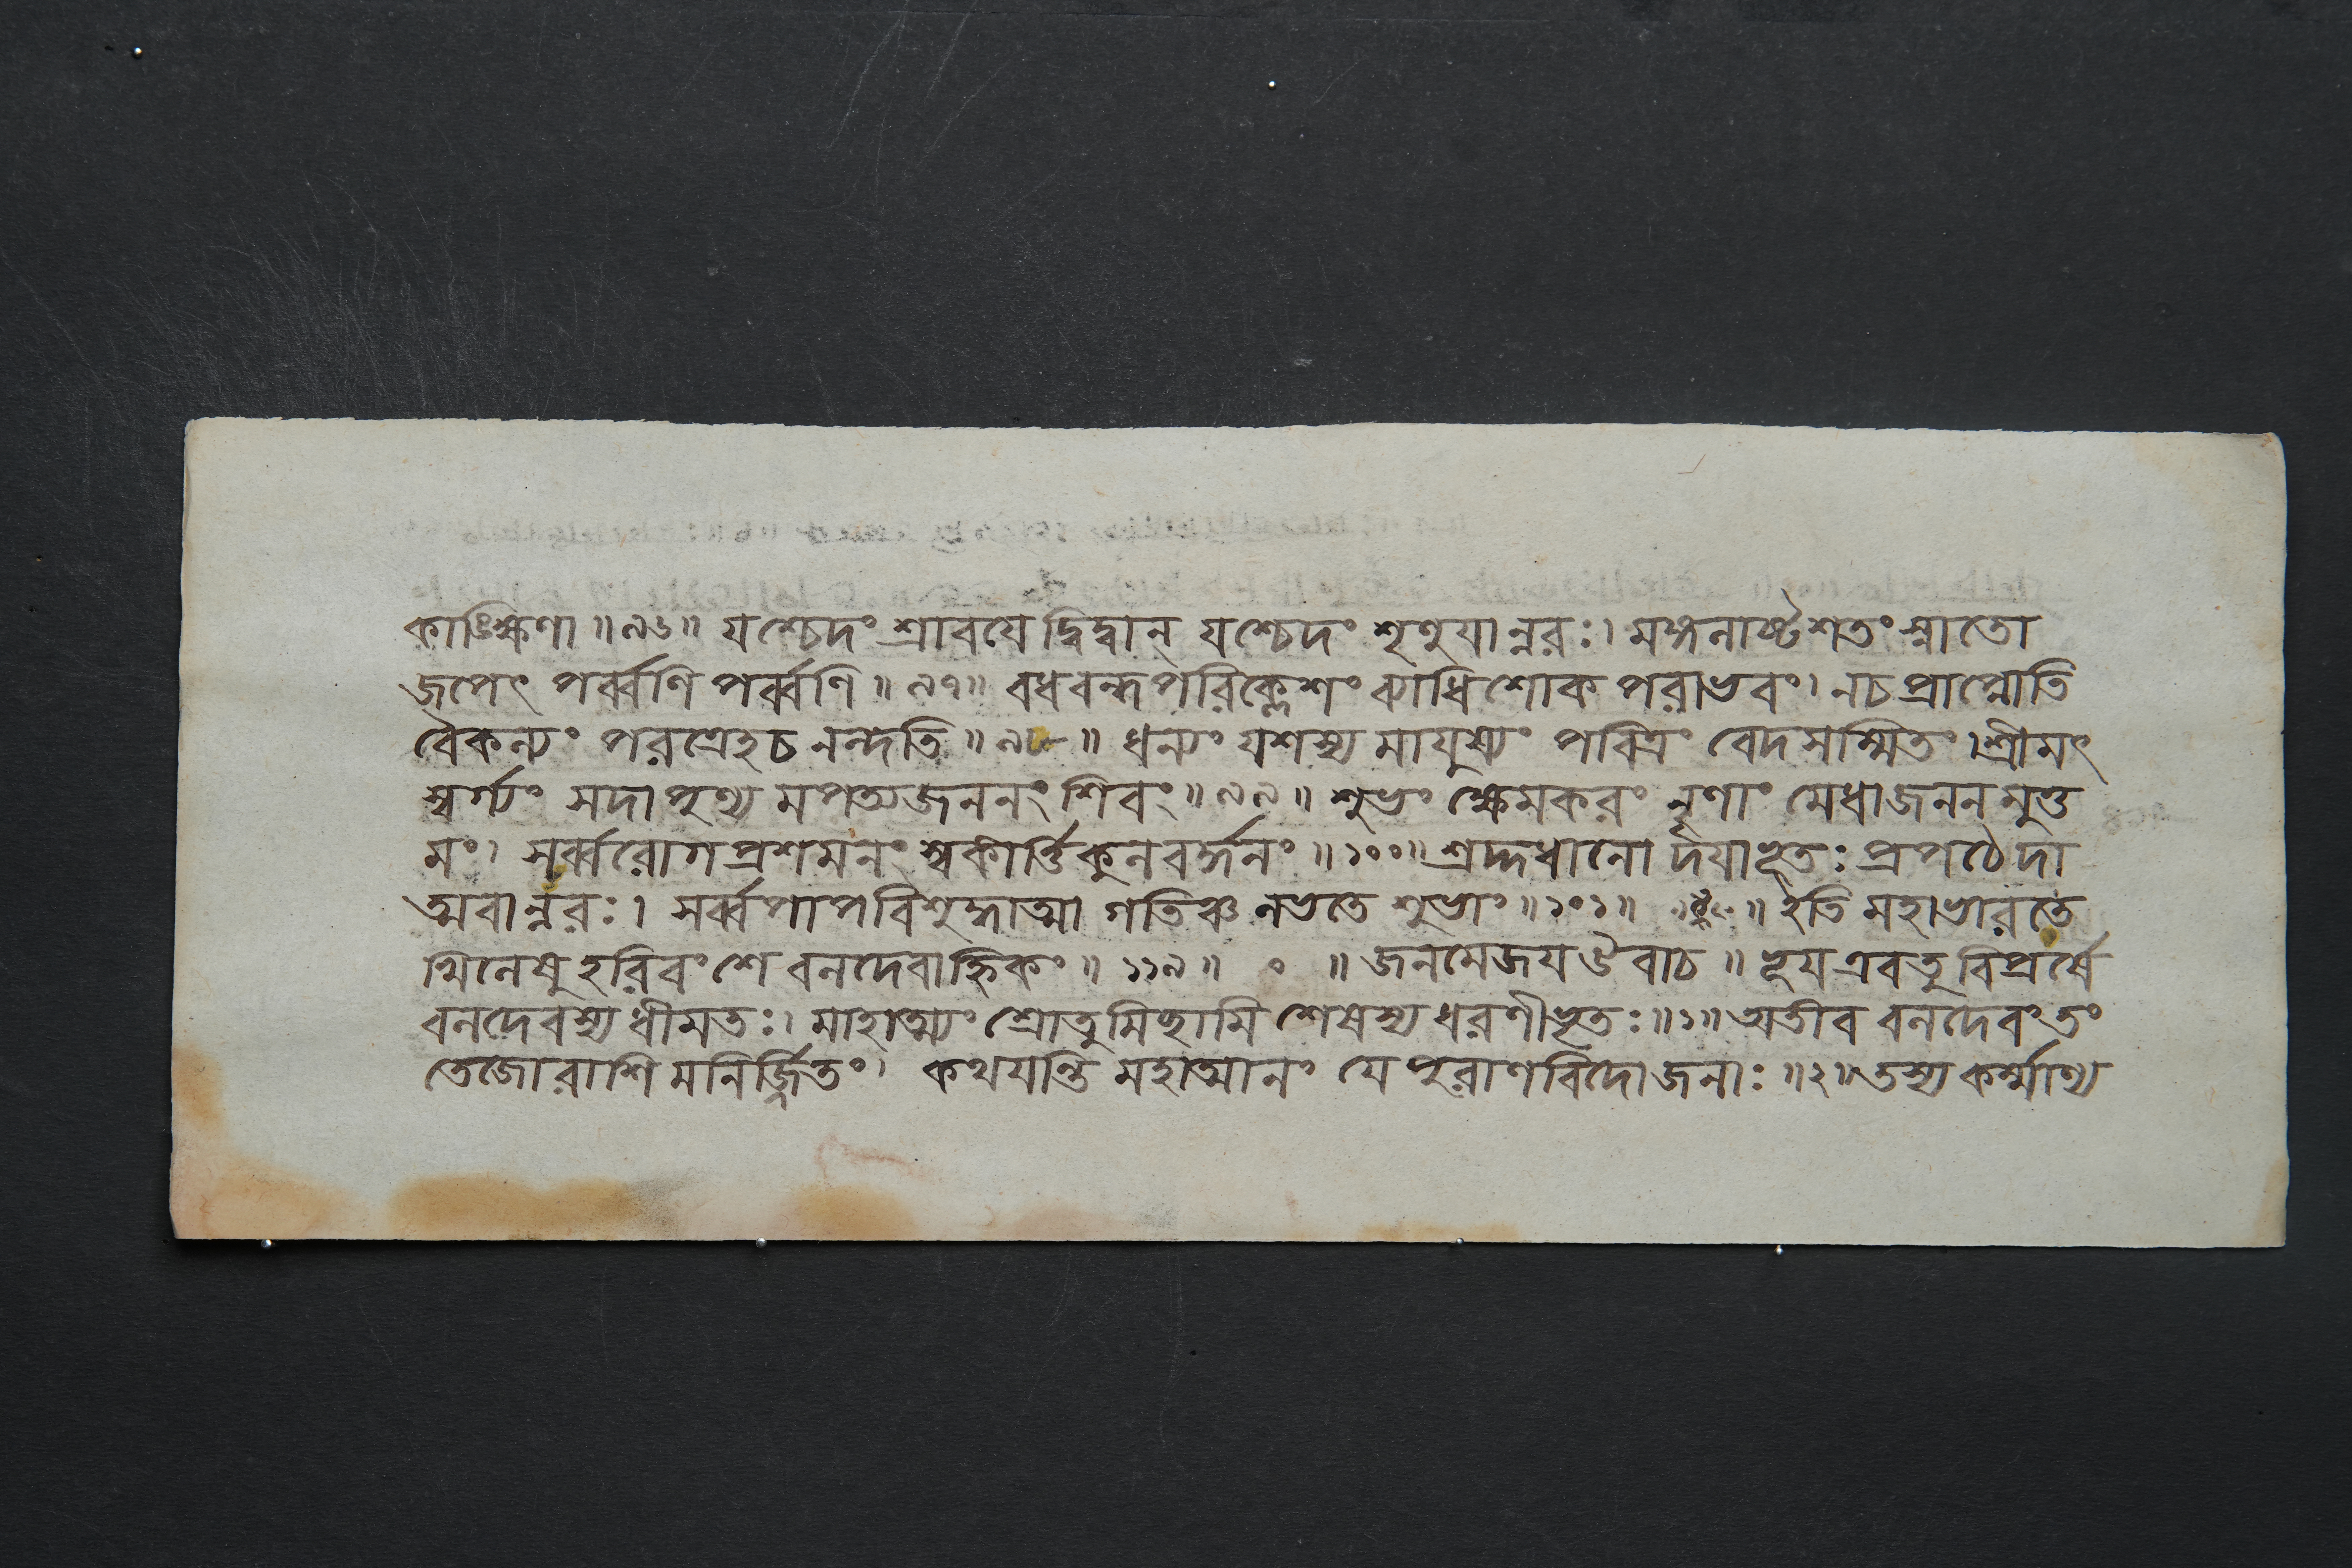 কাঙ্ক্ষিণা ॥ ৯৬ ॥ যশ্চেদং শ্রাবয়েদ্বিদ্বান্ যশ্চেদং শৃণুয়ান্নরঃ। মঙ্গলাষ্টশতং স্নাতো
জপেৎ পর্ব্বণি পর্ব্বণি ॥ ৯৭ ॥ বধবন্ধপরিক্লেশং ব্যাধিশোকপরাভবং। নচ প্রাপ্নোতি
বৈকল্যং পরত্রেহচ নন্দতি ॥ ৯৮ ॥ ধন্যং যশস্যমায়ুষ্যং পবিত্রং বেদসম্মিতং। শ্রীমৎ
স্বর্গ্যং সদা পুণ্যমপত্যজননং শিবং ॥ ৯৯ ॥ শুভং ক্ষেমকরং নৄণাং মেধাজননমুত্ত
মং। সর্ব্বরোগপ্রশমনং স্বকীর্ত্তিকুলবর্দ্ধনং ॥ ১০০ ॥ শ্রদ্দধানো দয়াভূতঃ প্রপঠেদা
ত্মবান্নরঃ। সর্ব্বপাপবিশুদ্ধাত্মা গতিঞ্চ লভতে শুভাং ॥ ১০১ ॥ ॥ ইতি মহাভারতে
খিলেষু হরিবংশে বলদেবাহ্নিকং ॥ ১১৯ ॥ ০ ॥ জনমেজয় উবাচ ॥ ভূয় এব তু বিপ্রর্ষে
বলদেবস্য ধীমতঃ। মাহাত্ম্যং শ্রোতুমিচ্ছামি শেষস্য ধরণীভৃতঃ ॥ ১ ॥ অতীব বলদেবং তং
তেজোরাশিমনির্জ্জিতং। কথয়ন্তি মহাত্মানং যে পুরাণবিদো জনাঃ ॥ ২ ॥ তস্য কর্ম্মাণ্য